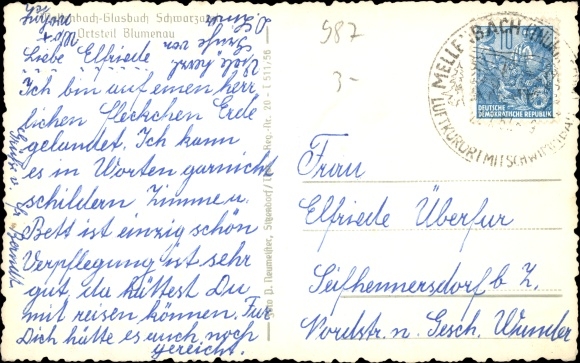 Mellenbach-Glasbach Schwarza
Ortsteil Blumenau
Liebe Elfriede
Ich bin auf einen herr
lichen Fleckchen Erde
gelandet, Ich kann
es in Worten garnicht
schildern Zimmer u.
Bett ist einzig schön
Verpflegung ist sehr
gut da hättest Du
mit reisen können. Für
Dich hätte es auch noch
gereicht.
Viele herzl.
Grüße von
Foto D. Neumeister, Sitzendorf/ Reg.-Nr. 20 - I 511/56
587
3-
MELLENBACH
LUFTKURORT MIT SCHWIMMBAD
10
DEUTSCHE
DEMOKRATISCHE REPUBLIK
Frau
Elfriede Überfur
Seifhennersdorf b Z.
Nordstr. n. Gesch. Wunder